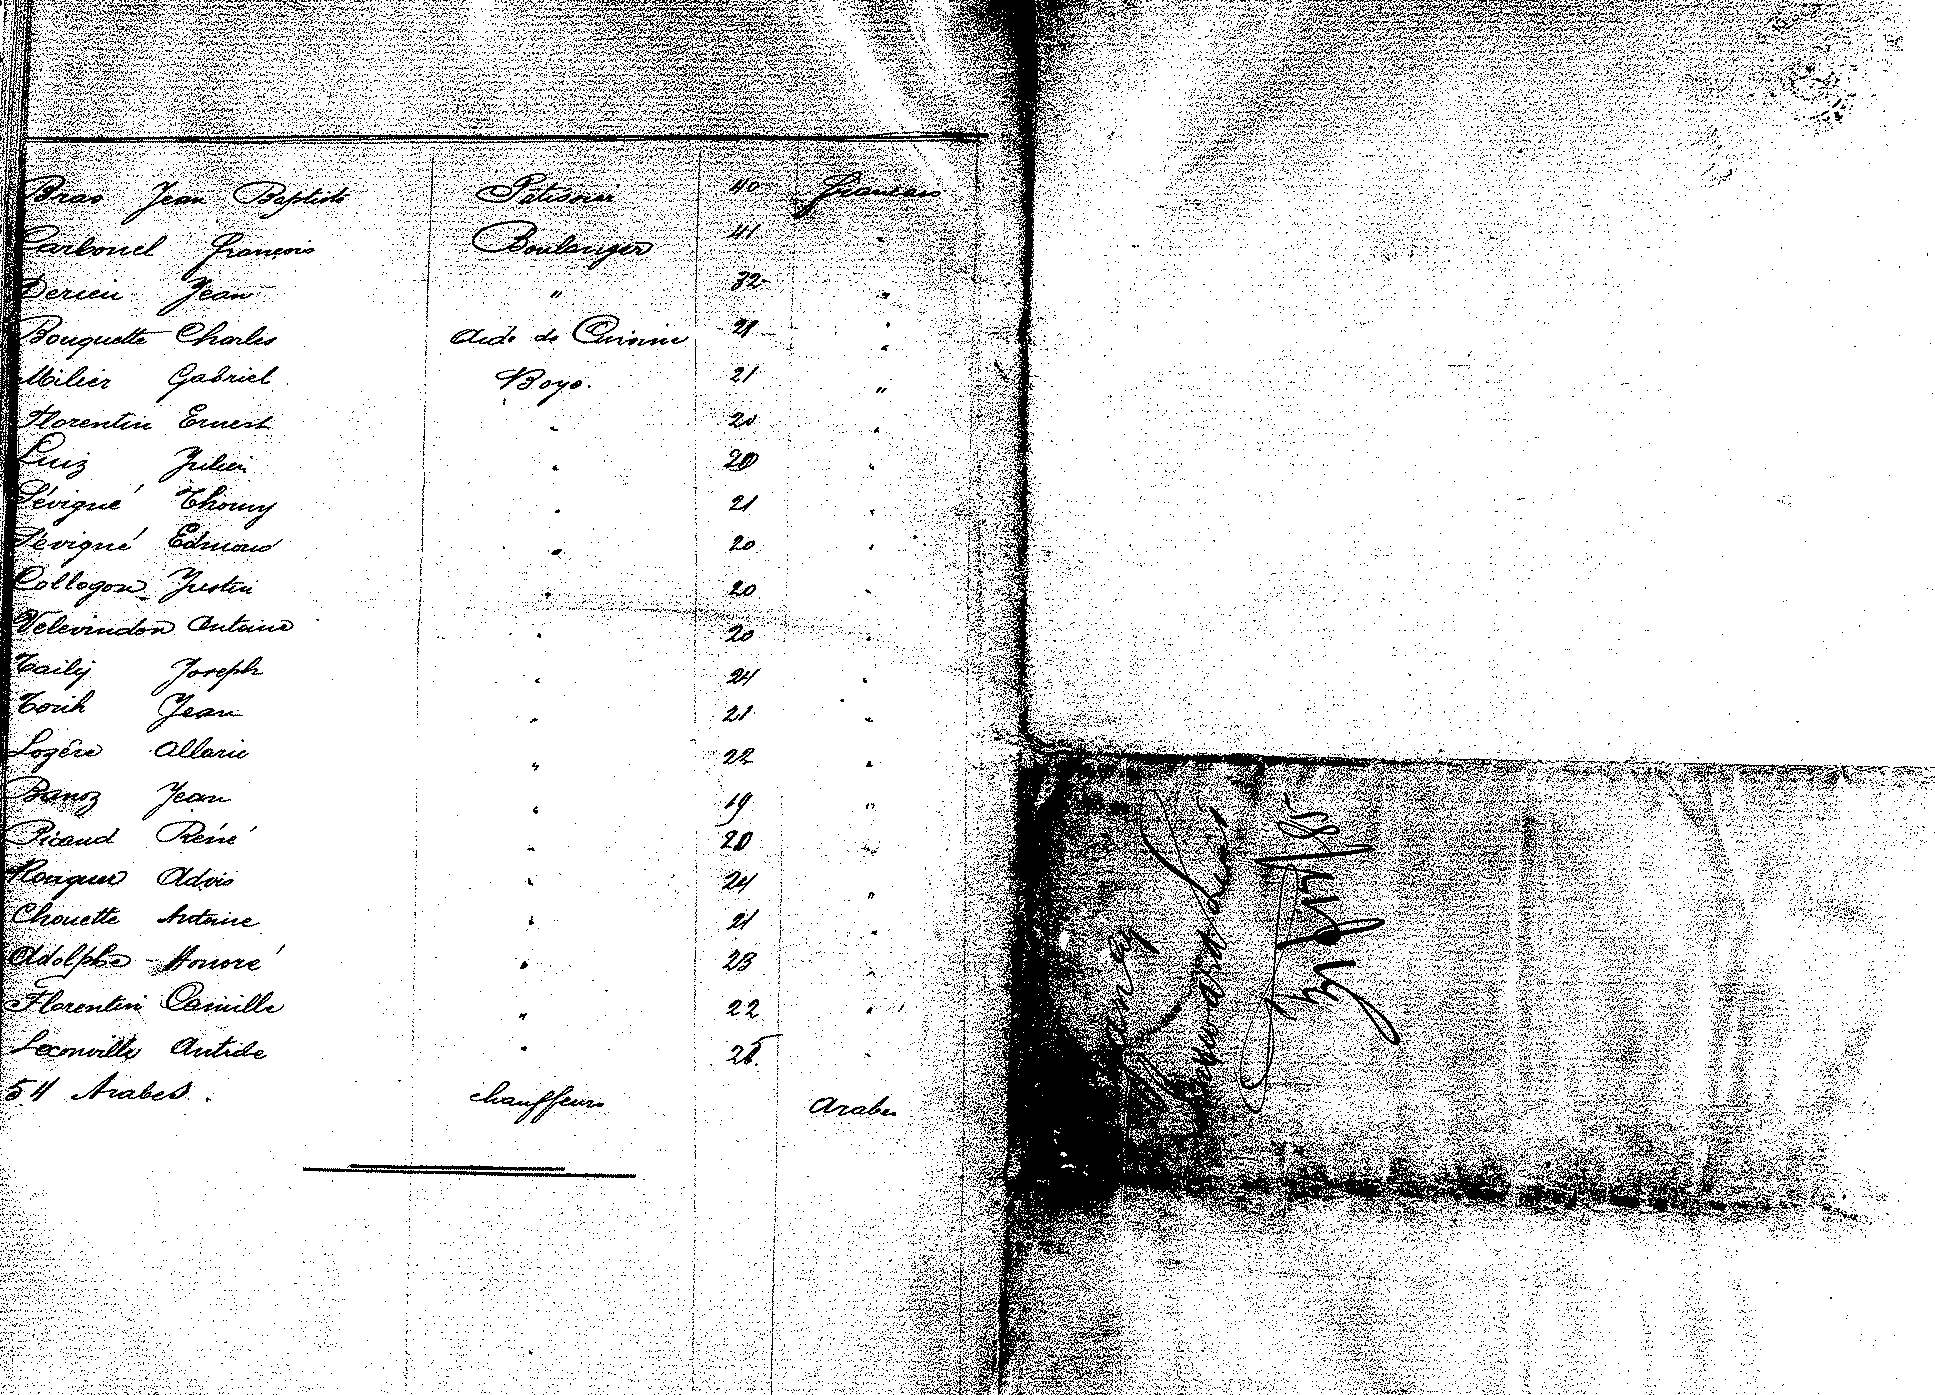 Bras Jean Baptiste Patissier 40 français
Carbonel françois Boulanger 41 "
Derien Jean " 32 "
Bouquette Charles Aide de Cuisine 21 "
Milier Gabriel Boys. 21 "
Florentin Ernest " 20 "
Luiz Julien " 20 "
Sévigné Thomy " 21 "
Sévigné Edmond " 20 "
Collogon Justin " 20 "
Velevindon Antoine " 20 "
Taily Joseph " 24 "
Torih Jean " 21 "
Lozère Allarie " 22 "
Banoz Jean " 19 "
Picaud Réné " 20 "
Advis " 24 "
Chouette Antoine " 21 "
Adolphe Honoré " 23 "
Florentin Camille " 22 "
Leconville Antide "
54 Arabes. chauffeurs Arabes